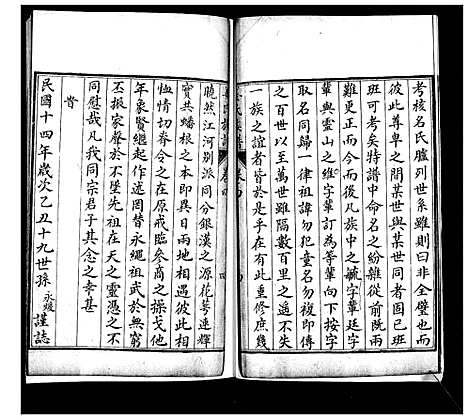 考核名氏臚列世系雖則曰非全璧也而
彼此尊卑之間某世與某世同者固已班
班可考矣特譜中之字雜前從既兩
難更正而今而後凡族中之毓字輩廷字
輩與靈山之維字輩訂為等輩向下按字
取名同歸一律祖諱勿犯童名勿複即傳
之百世以至萬世雖隔數百里之遥不失
一族之誼者皆於是乎在此有此重修庶幾
曉然江河别派同分銀漢之源花萼連輝
實共蟠根之本即異日兩地相遇彼此相
恤情切眷令之在原戒臨參商之操戈他
年象賢繼起作述罔替永繩祖武於無窮
丕振家聲於不墜先祖在天之靈憑之不
同慰哉凡我同宗君子其念之幸甚
民國十四年歲次乙丑十九世孫永煖謹誌
卷四